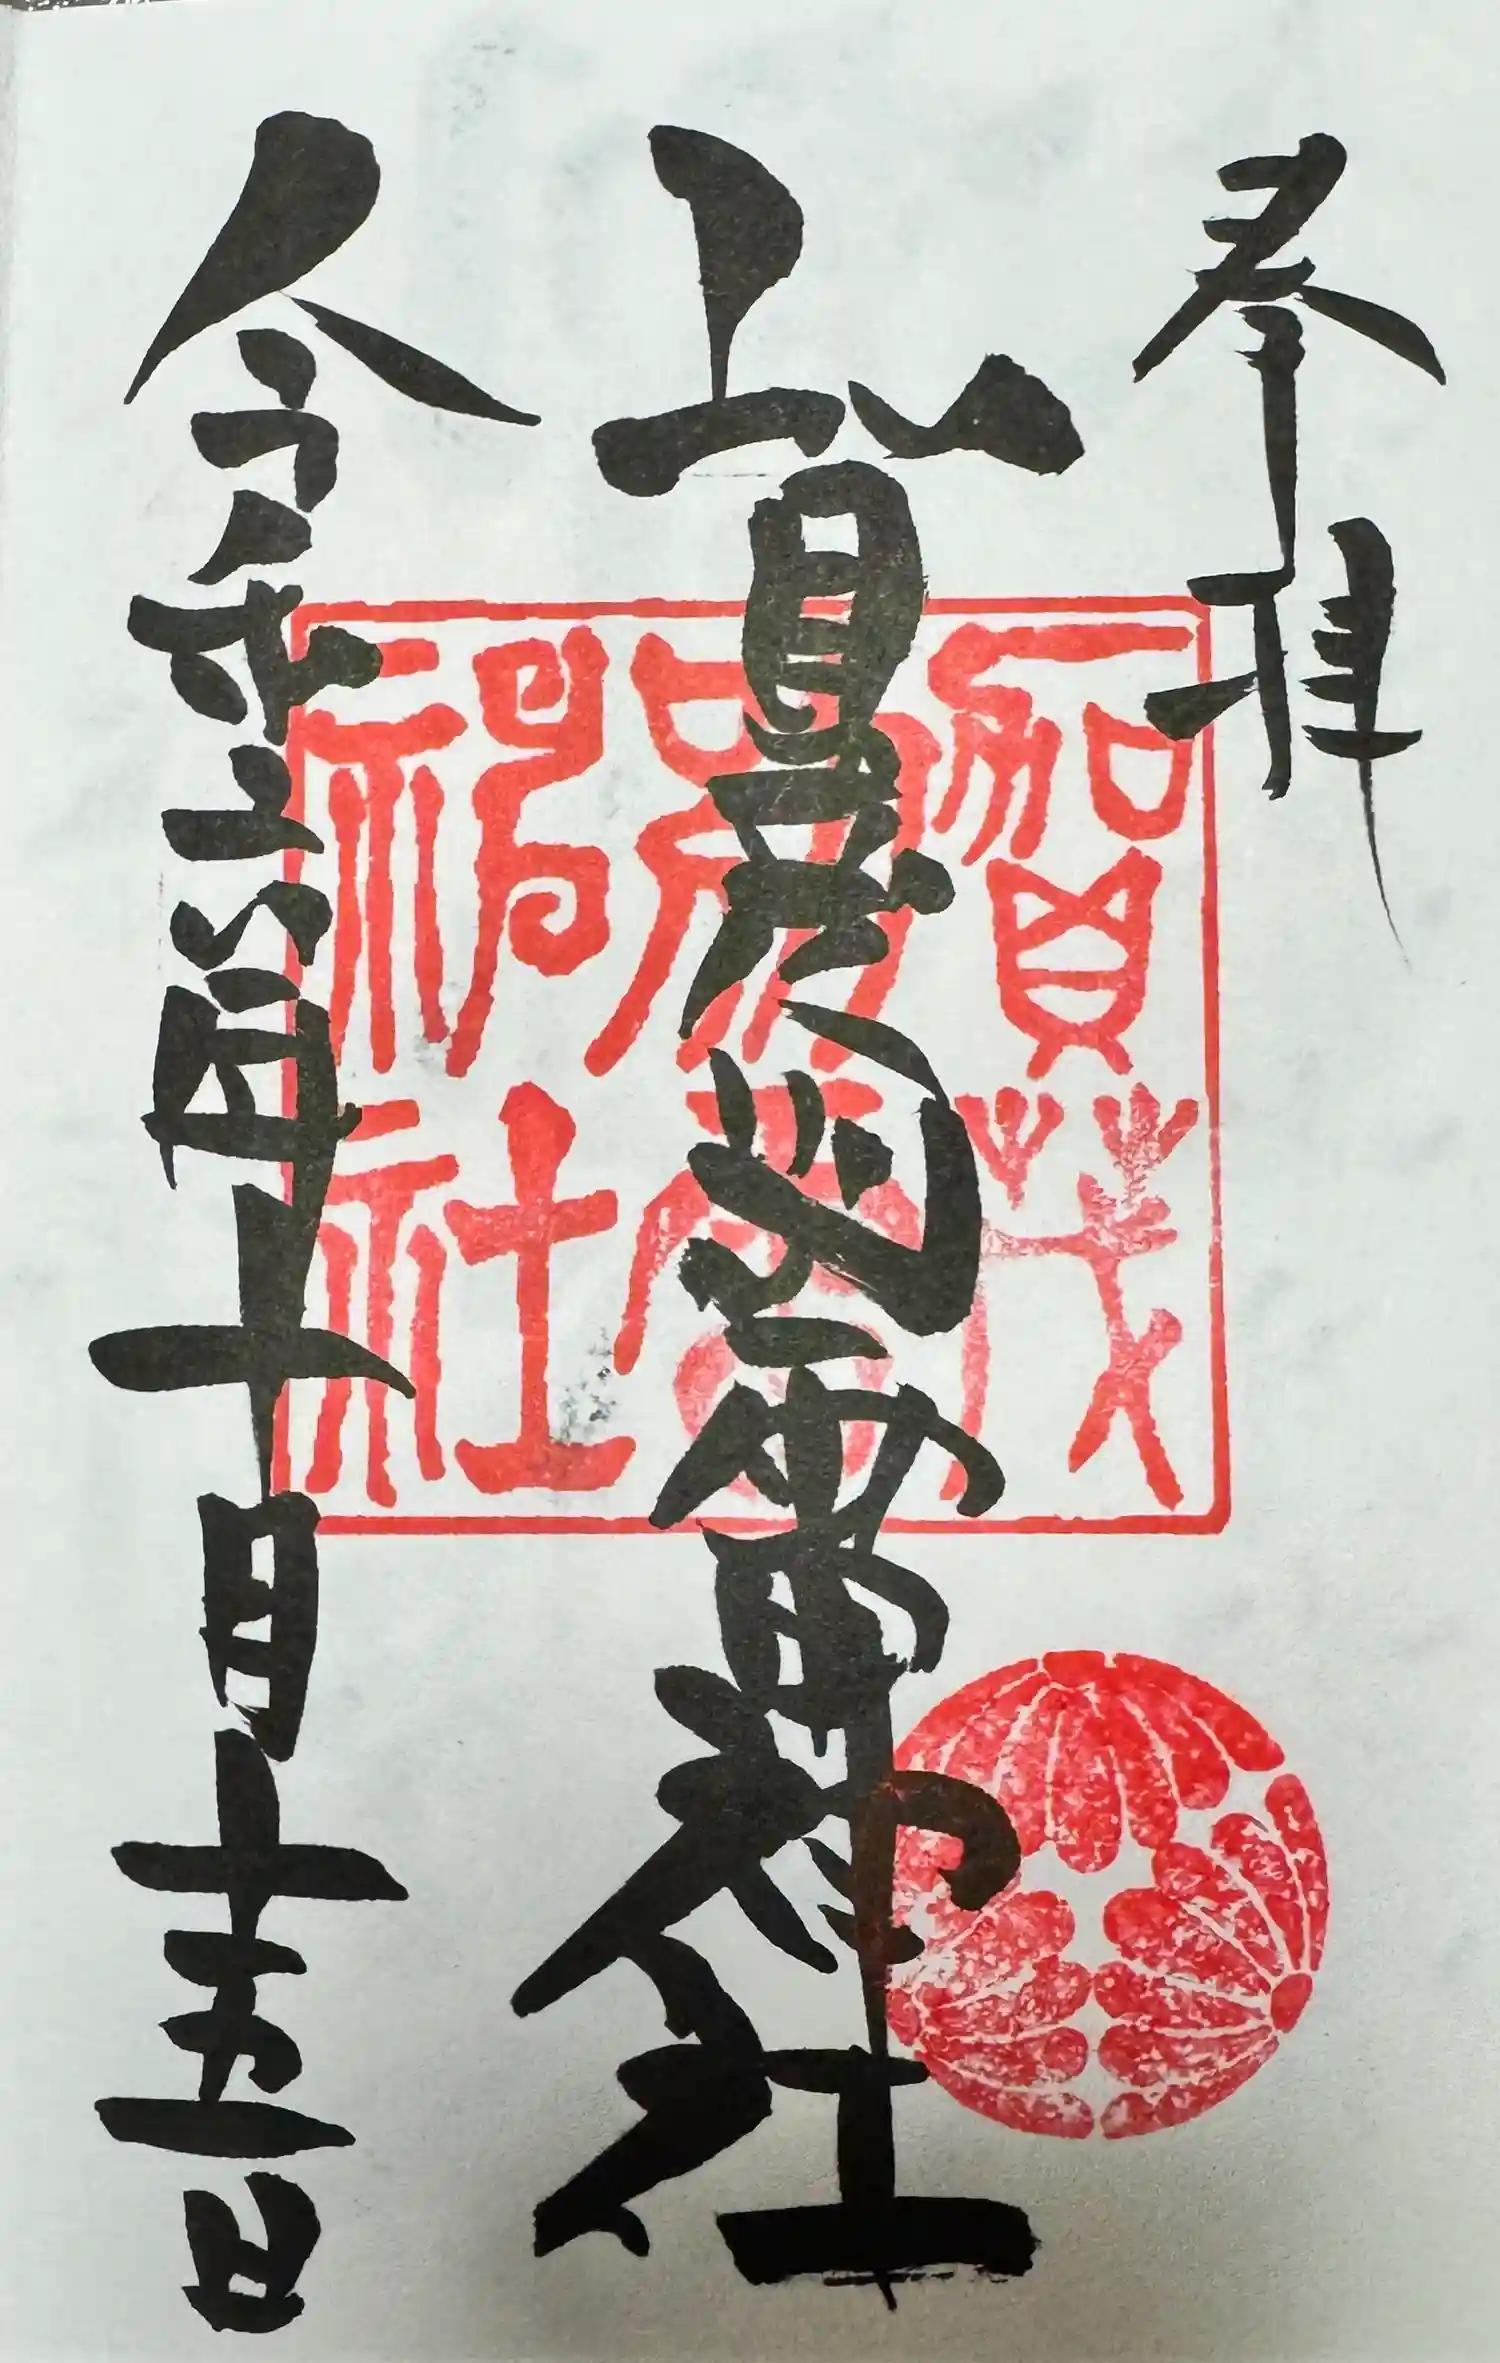 奉拝
賀茂別雷神社
令和六年十月十五日
賀茂
別雷
神社